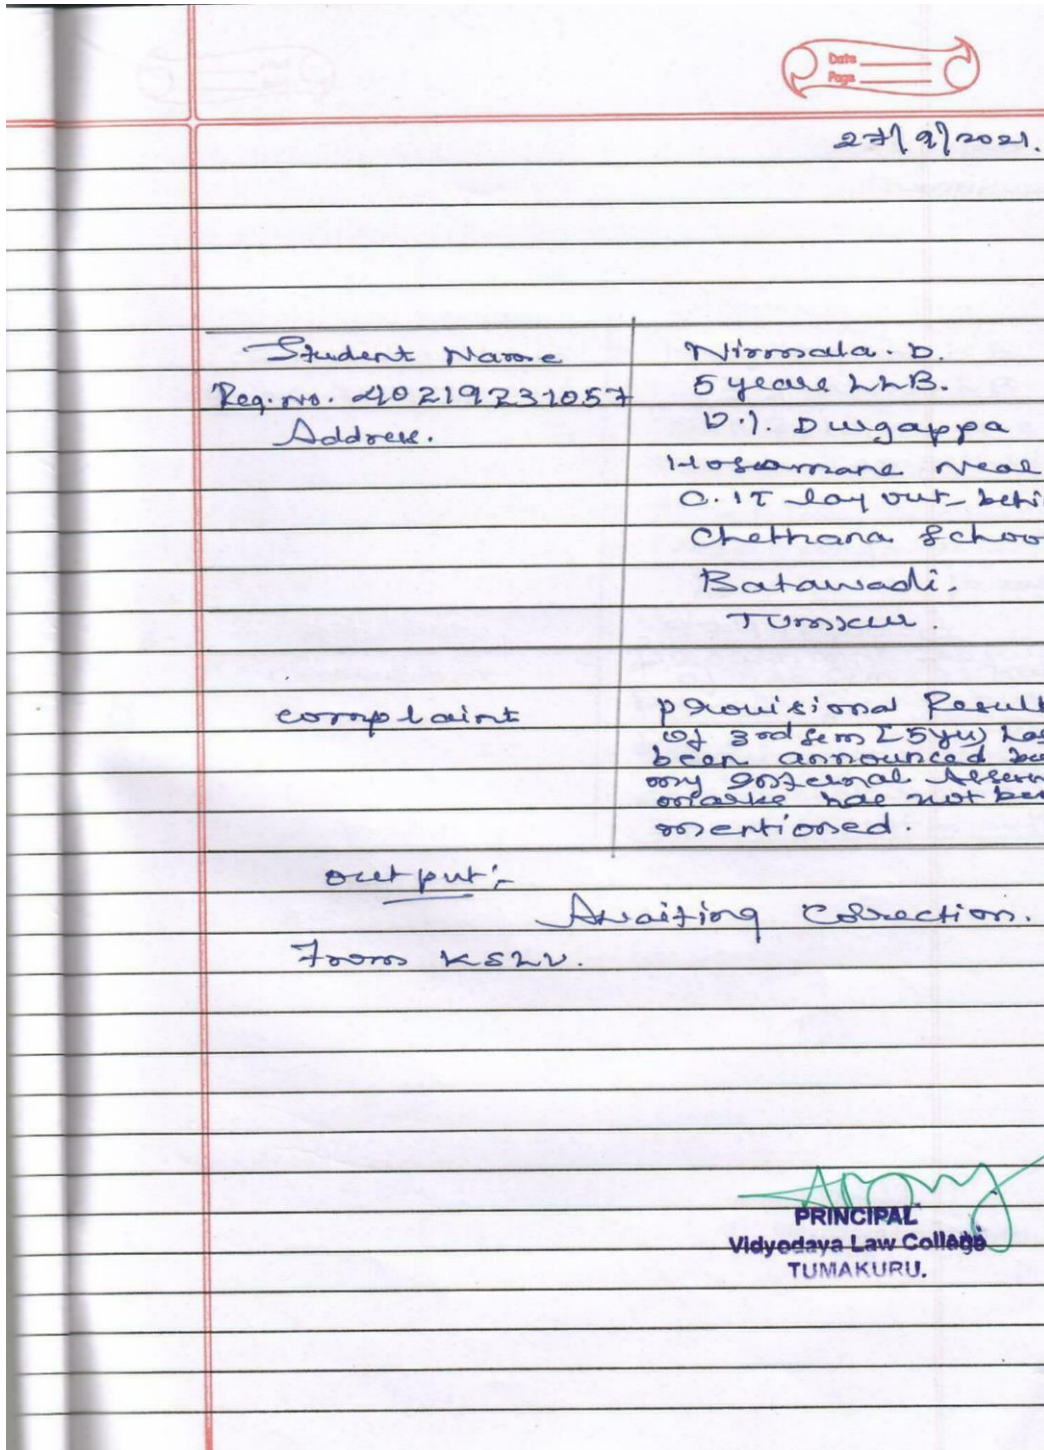 Date
Page
27/9/2021.
Student Name
Nirmala. D.
Reg. No. 40219231057
5 years LLB.
Address.
D.). Durgappa
Hosamane Near
C. IT lay out behi
Chethana Schoo
Batawadi.
Tumkur.
complaint
provisional Result
of 3rd sem [5yr) has
been announced bu
my Internal Assem
marks has not bee
mentioned.
output:-
Awaiting Correction.
From KSLU.
PRINCIPAL
Vidyodaya Law College
TUMAKURU.